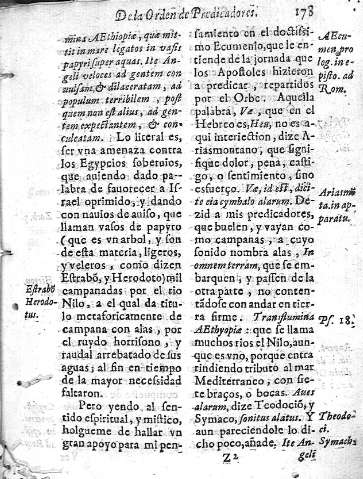 De la Orden de Predicadores. 178
mina AEthiopiæ, quæ mit-
tit in mare legatos in vasis
papyri super aquas. Ite An-
geli veloces ad gentem con-
uulsam, & dilaceratam, ad
populum terribilem, post
quem non est alius, ad gen-
tem expectantem, & con-
culcatam. Lo literal es,
ser vna amenaza contra
los Egypcios soberuios,
que auiendo dado pa-
labra de fauorecer a Is-
rael oprimido, y dando
con nauios de auiso, que
llaman vasos de papyro
(que es vn arbol, y son
de esta materia, ligeros,
y veleros, como dizen
Estrabõ, y Herodoto) mil
campanadas por el rio
Nilo, a el qual da titu-
lo metaforicamente de
campana con alas, por
el ruydo horrisono, y
raudal arrebatado de sus
aguas; al fin en tiempo
de la mayor necessidad
faltaron.
Pero yendo al sen-
tido espiritual, y mistico,
holgueme de hallar vn
gran apoyo para mi pen-
Estrabõ
Herodo-
tus.
samiento en el doctissi-
mo Ecumenio, que le en-
tiende de la jornada que
los Apostoles hizieron
a predicar, repartidos
por el Orbe. Aquella
palabra, Væ, que en el
Hebreo es, Heu, no es a-
qui interjection, dize A-
riasmontano, que signi-
fique dolor, pena, casti-
go, o sentimiento, sino
esfuerço. Væ, id est, dici-
te eia cymbalo alarum. De-
zid a mis predicadores,
que buelen, y vayan co-
mo campanas, a cuyo
sonido nombra alas, In
omnem terram, que se em-
barquen, y passen de la
otra parte, no conten-
tãdose con andar en tier-
ra firme. Transflumina
AEthyopiæ: que se llama
muchos rios el Nilo, aun-
que es vno, porque entra
rindiendo tributo al mar
Mediterraneo, con sie-
te braços, o bocas. Aues
alarum, dize Teodoció, y
Symaco, sonitus alatus. Y
aun pareciendole lo di-
cho poco, añade, Ite An-
AEcu-
men. pro
log. in e-
pist. ad
Rom.
Ariasmõ
ta. in ap-
paratu.
Ps. 18.
Theodo-
ci.
Symach.
Z 2 geli